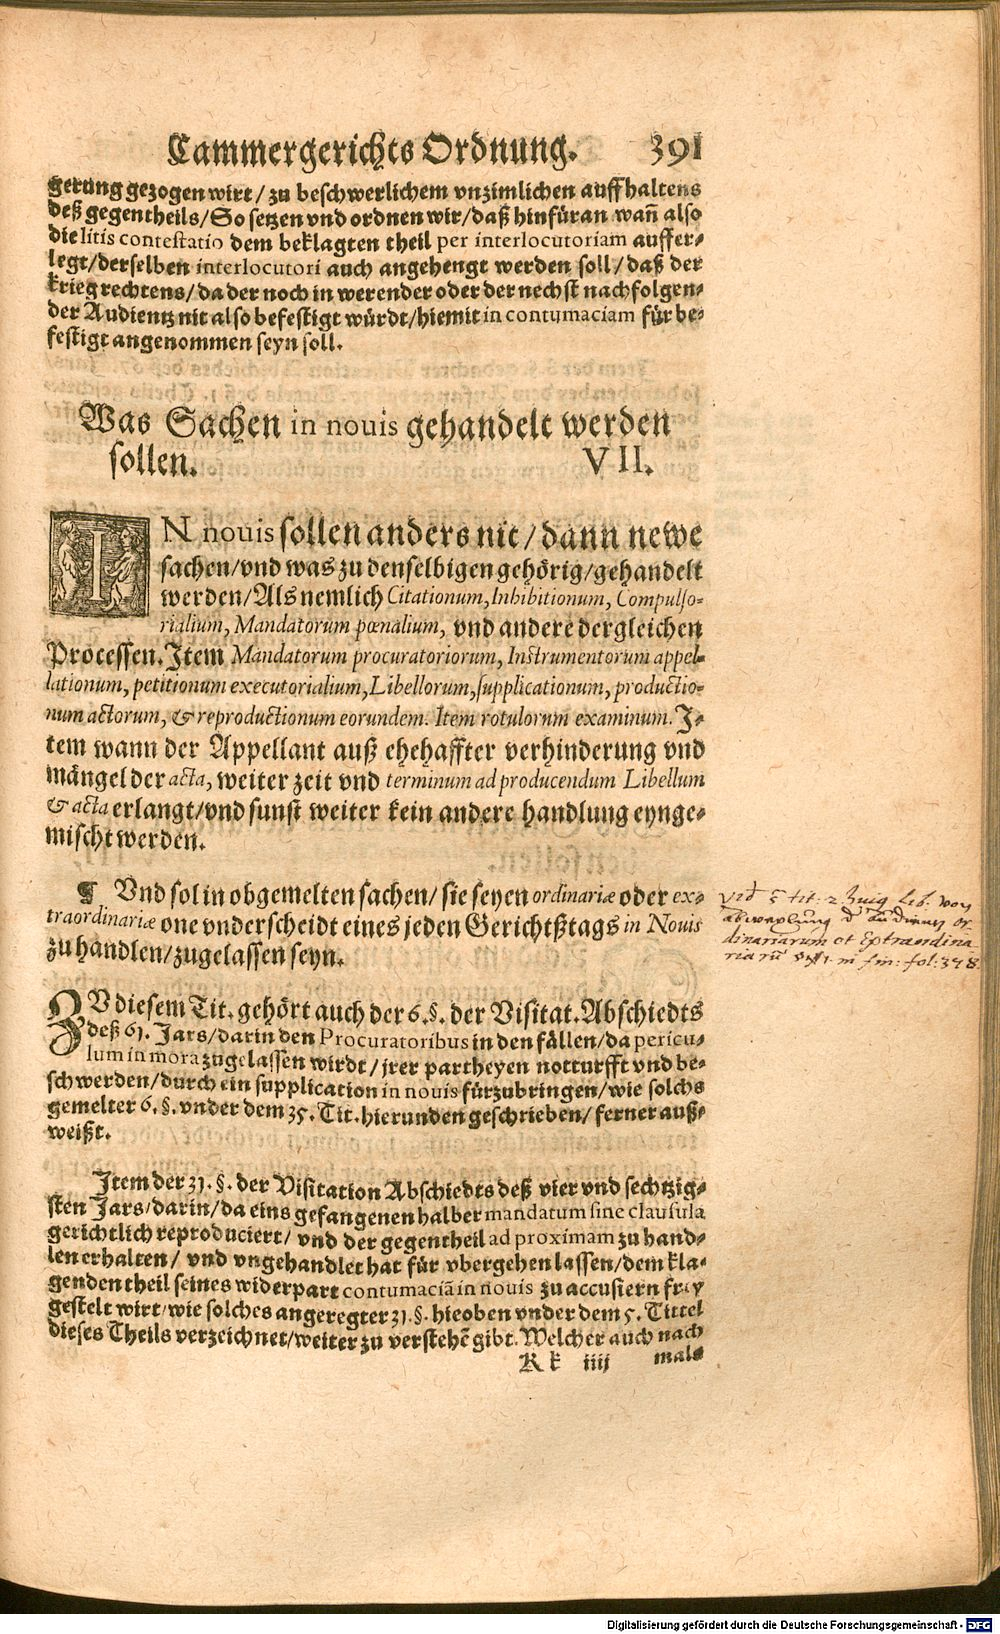 Cammergerichts Ordnung. 391
gerung gezogen wirt / zu beschwerlichem vnzimlichen auffhaltens
deß gegentheils / So setzen vnd ordnen wir / daß hinfüran wañ also
die litis contestatio dem beklagten theil per interlocutoriam auffer-
legt / derselben interlocutori auch angehengt werden soll / daß der
krieg rechtens / da der noch in werender oder der nechst nachfolgen-
der Audientz nit also befestigt würdt / hiemit in contumaciam für be-
festigt angenommen seyn soll.
Was Sachen in nouis gehandelt werden
sollen. VII.
IN nouis sollen anders nit / dann newe
sachen / vnd was zu denselbigen gehörig / gehandelt
werden / Als nemlich Citationum, Inhibitionum, Compulso-
rialium, Mandatorum pœnalium, vnd andere dergleichen
Processen. Item Mandatorum procuratoriorum, Instrumentorum appel-
lationum, petitionum executorialium, Libellorum, supplicationum, productio-
num actorum, & reproductionum eorundem. Item rotulorum examinum. I-
tem wann der Appellant auß ehehaffter verhinderung vnd
mängel der acta, weiter zeit vnd terminum ad producendum Libellum
& acta erlangt / vnd sunst weiter kein andere handlung eynge-
mischt werden.
¶ Vnd sol in obgemelten sachen / sie seyen ordinariæ oder ex-
traordinariæ one vnderscheidt eines jeden Gerichtßtags in Nouis
zu handlen / zugelassen seyn.
ZV diesem Tit. gehört auch der 6. §. der Visitat. Abschiedts
deß 61. Jars / darin den Procuratoribus in den fällen / da pericu-
lum in mora zugelassen wirdt / jrer partheyen notturfft vnd be-
schwerden / durch ein supplication in nouis fürzubringen / wie solchs
gemelter 6. §. vnder dem 35. Tit. hierunden geschrieben / ferner auß-
weißt.
Item der 31. §. der Visitation Abschiedts deß vier vnd sechtzig-
sten Jars / darin / da eins gefangenen halber mandatum sine clausula
gerichtlich reproduciert / vnd der gegentheil ad proximam zu hand-
len erhalten / vnd vngehandlet hat für vbergehen lassen / dem kla-
genden theil seines widerpart contumaciã in nouis zu accusiern frey
gestelt wirt / wie solches angeregter 31. §. hieoben vnder dem 5. Tittel
dieses Theils verzeichnet / weiter zu verstehẽ gibt. Welcher auch nach
K k iiij mals
tit: 2. von
abwexlung d Audientz or-
dinariarum et Extraordina
riarū in fin: fol: 378.
Digitalisierung gefördert durch die Deutsche Forschungsgemeinschaft - DFG